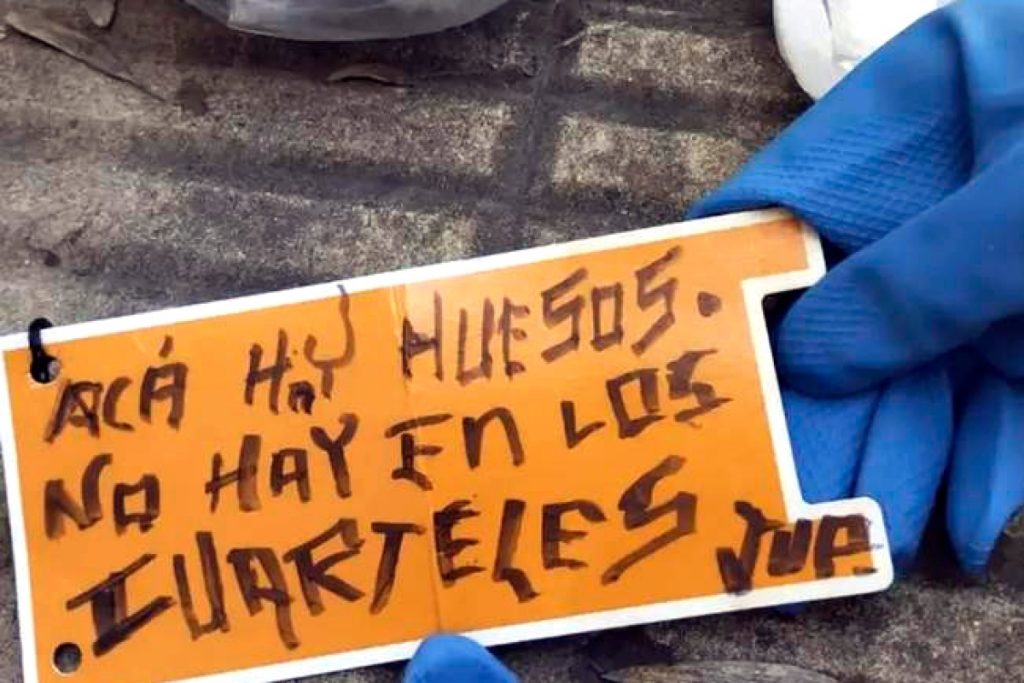 ACÁ HAY HUESOS.
NO HAY EN LOS
CUARTELES